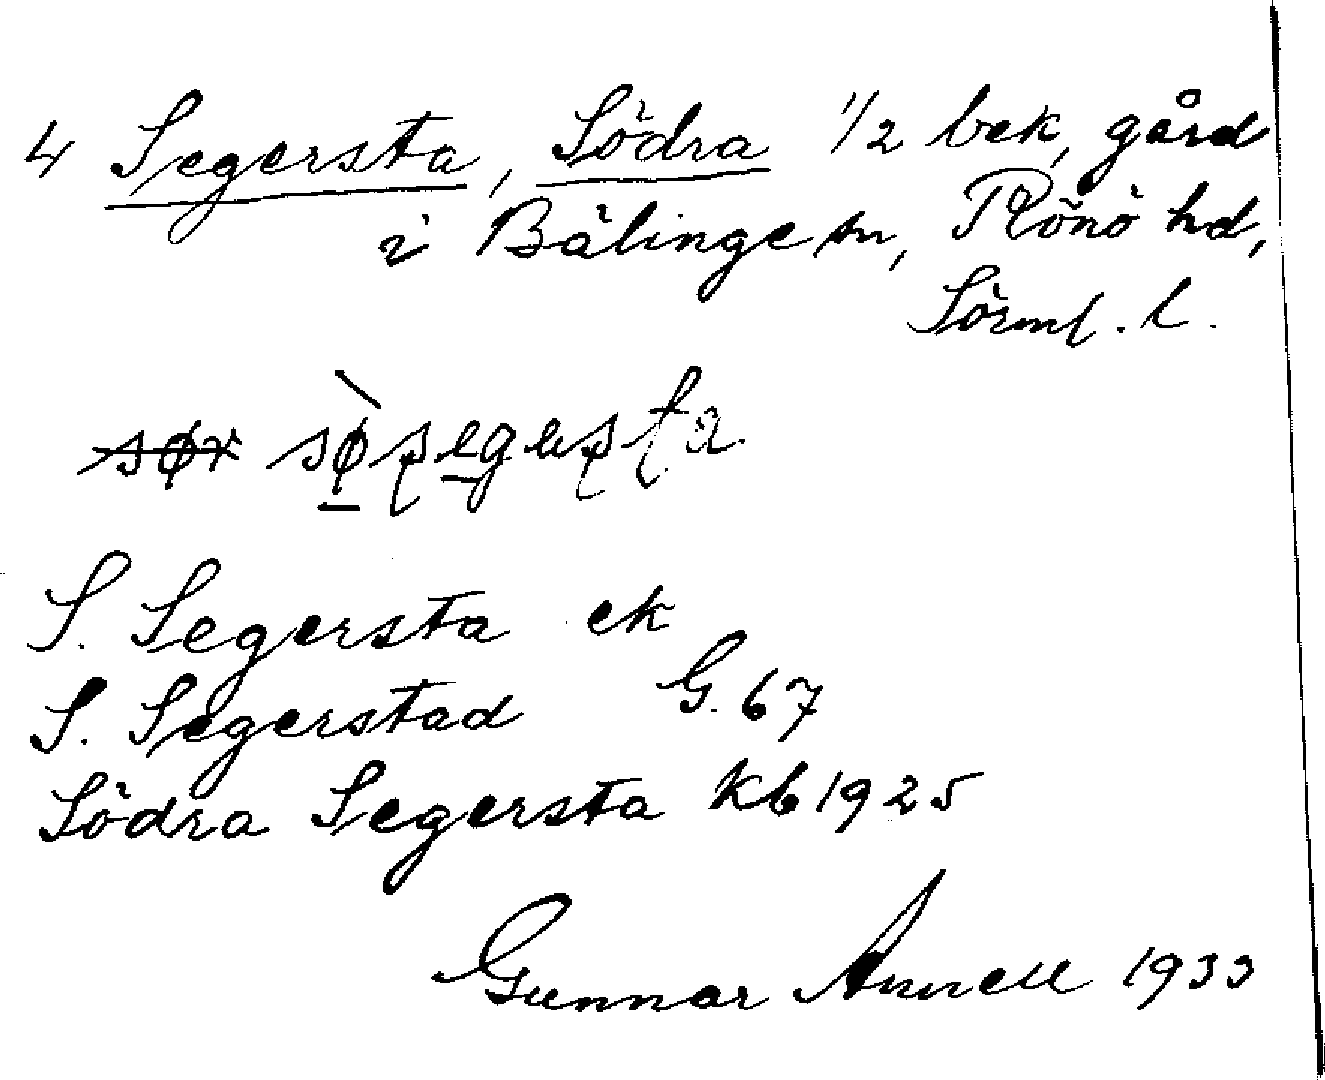 4 Segersta, Södra 1/2 bek, gård
i Bälinge sn, Rönö hd,
Sörml. l.
S. Segersta ek
S. Segerstad G. 67
Södra Segersta kb 1925
Gunnar Annell 1933